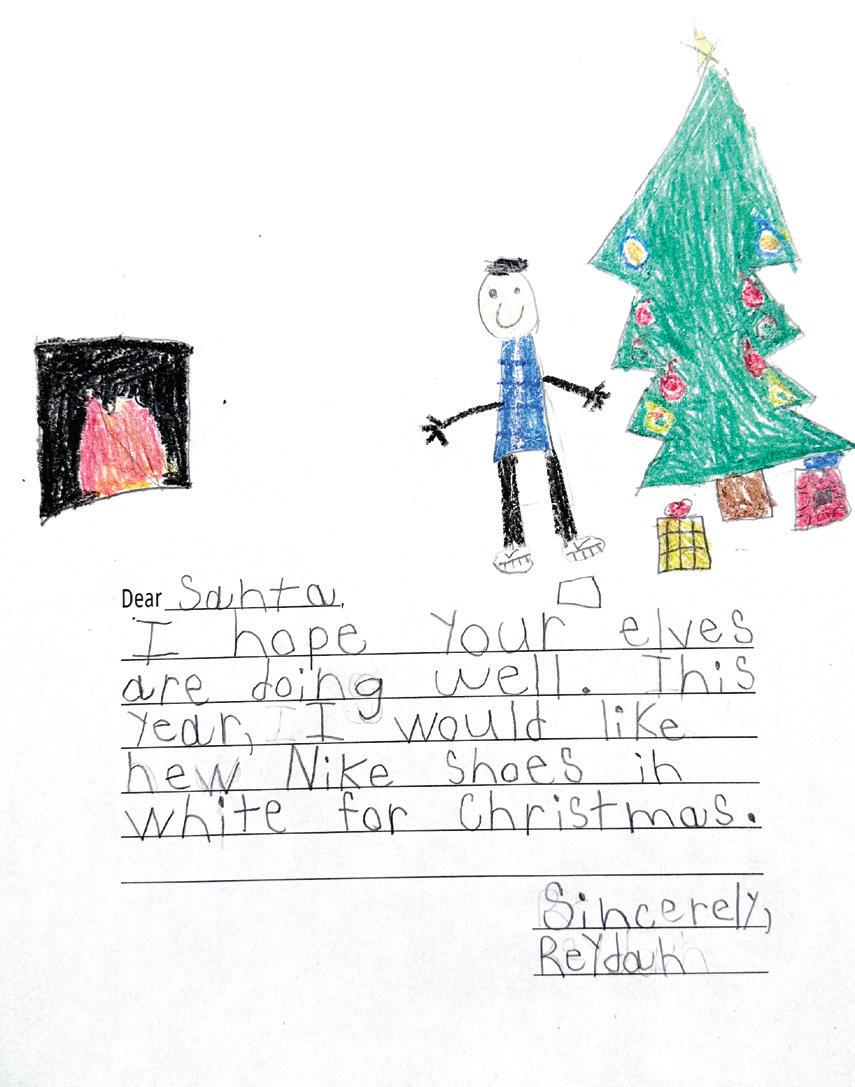 Dear Santa,
I hope your elves
are doing well. This
year, I would like
new Nike shoes in
white for Christmas.
Sincerely,